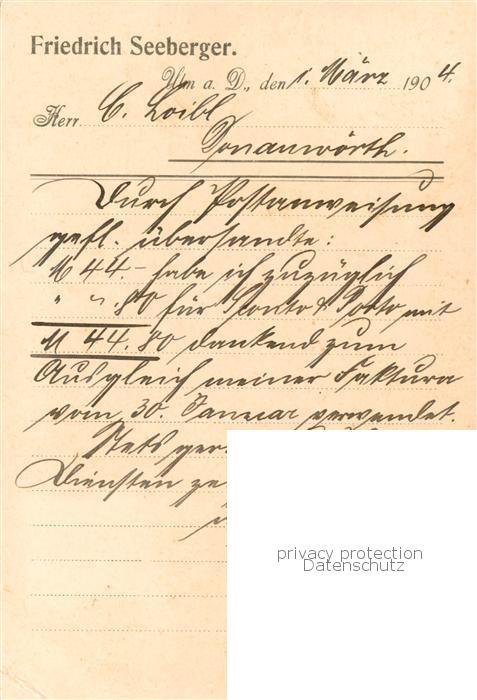 Friedrich Seeberger.
Ulm a. D., den 1. März 1904.
Herr C. Loibl
Donauwörth.
Durch Postanweisung
gefl. übersandte:
M 44.– habe ich zuzüglich
" –.80 für Sconto & Porto mit
M 44.80 dankend zum
Ausgleich meiner Faktura
vom 30. Januar verwendet.
Stets gern
Diensten
privacy protection
Datenschutz